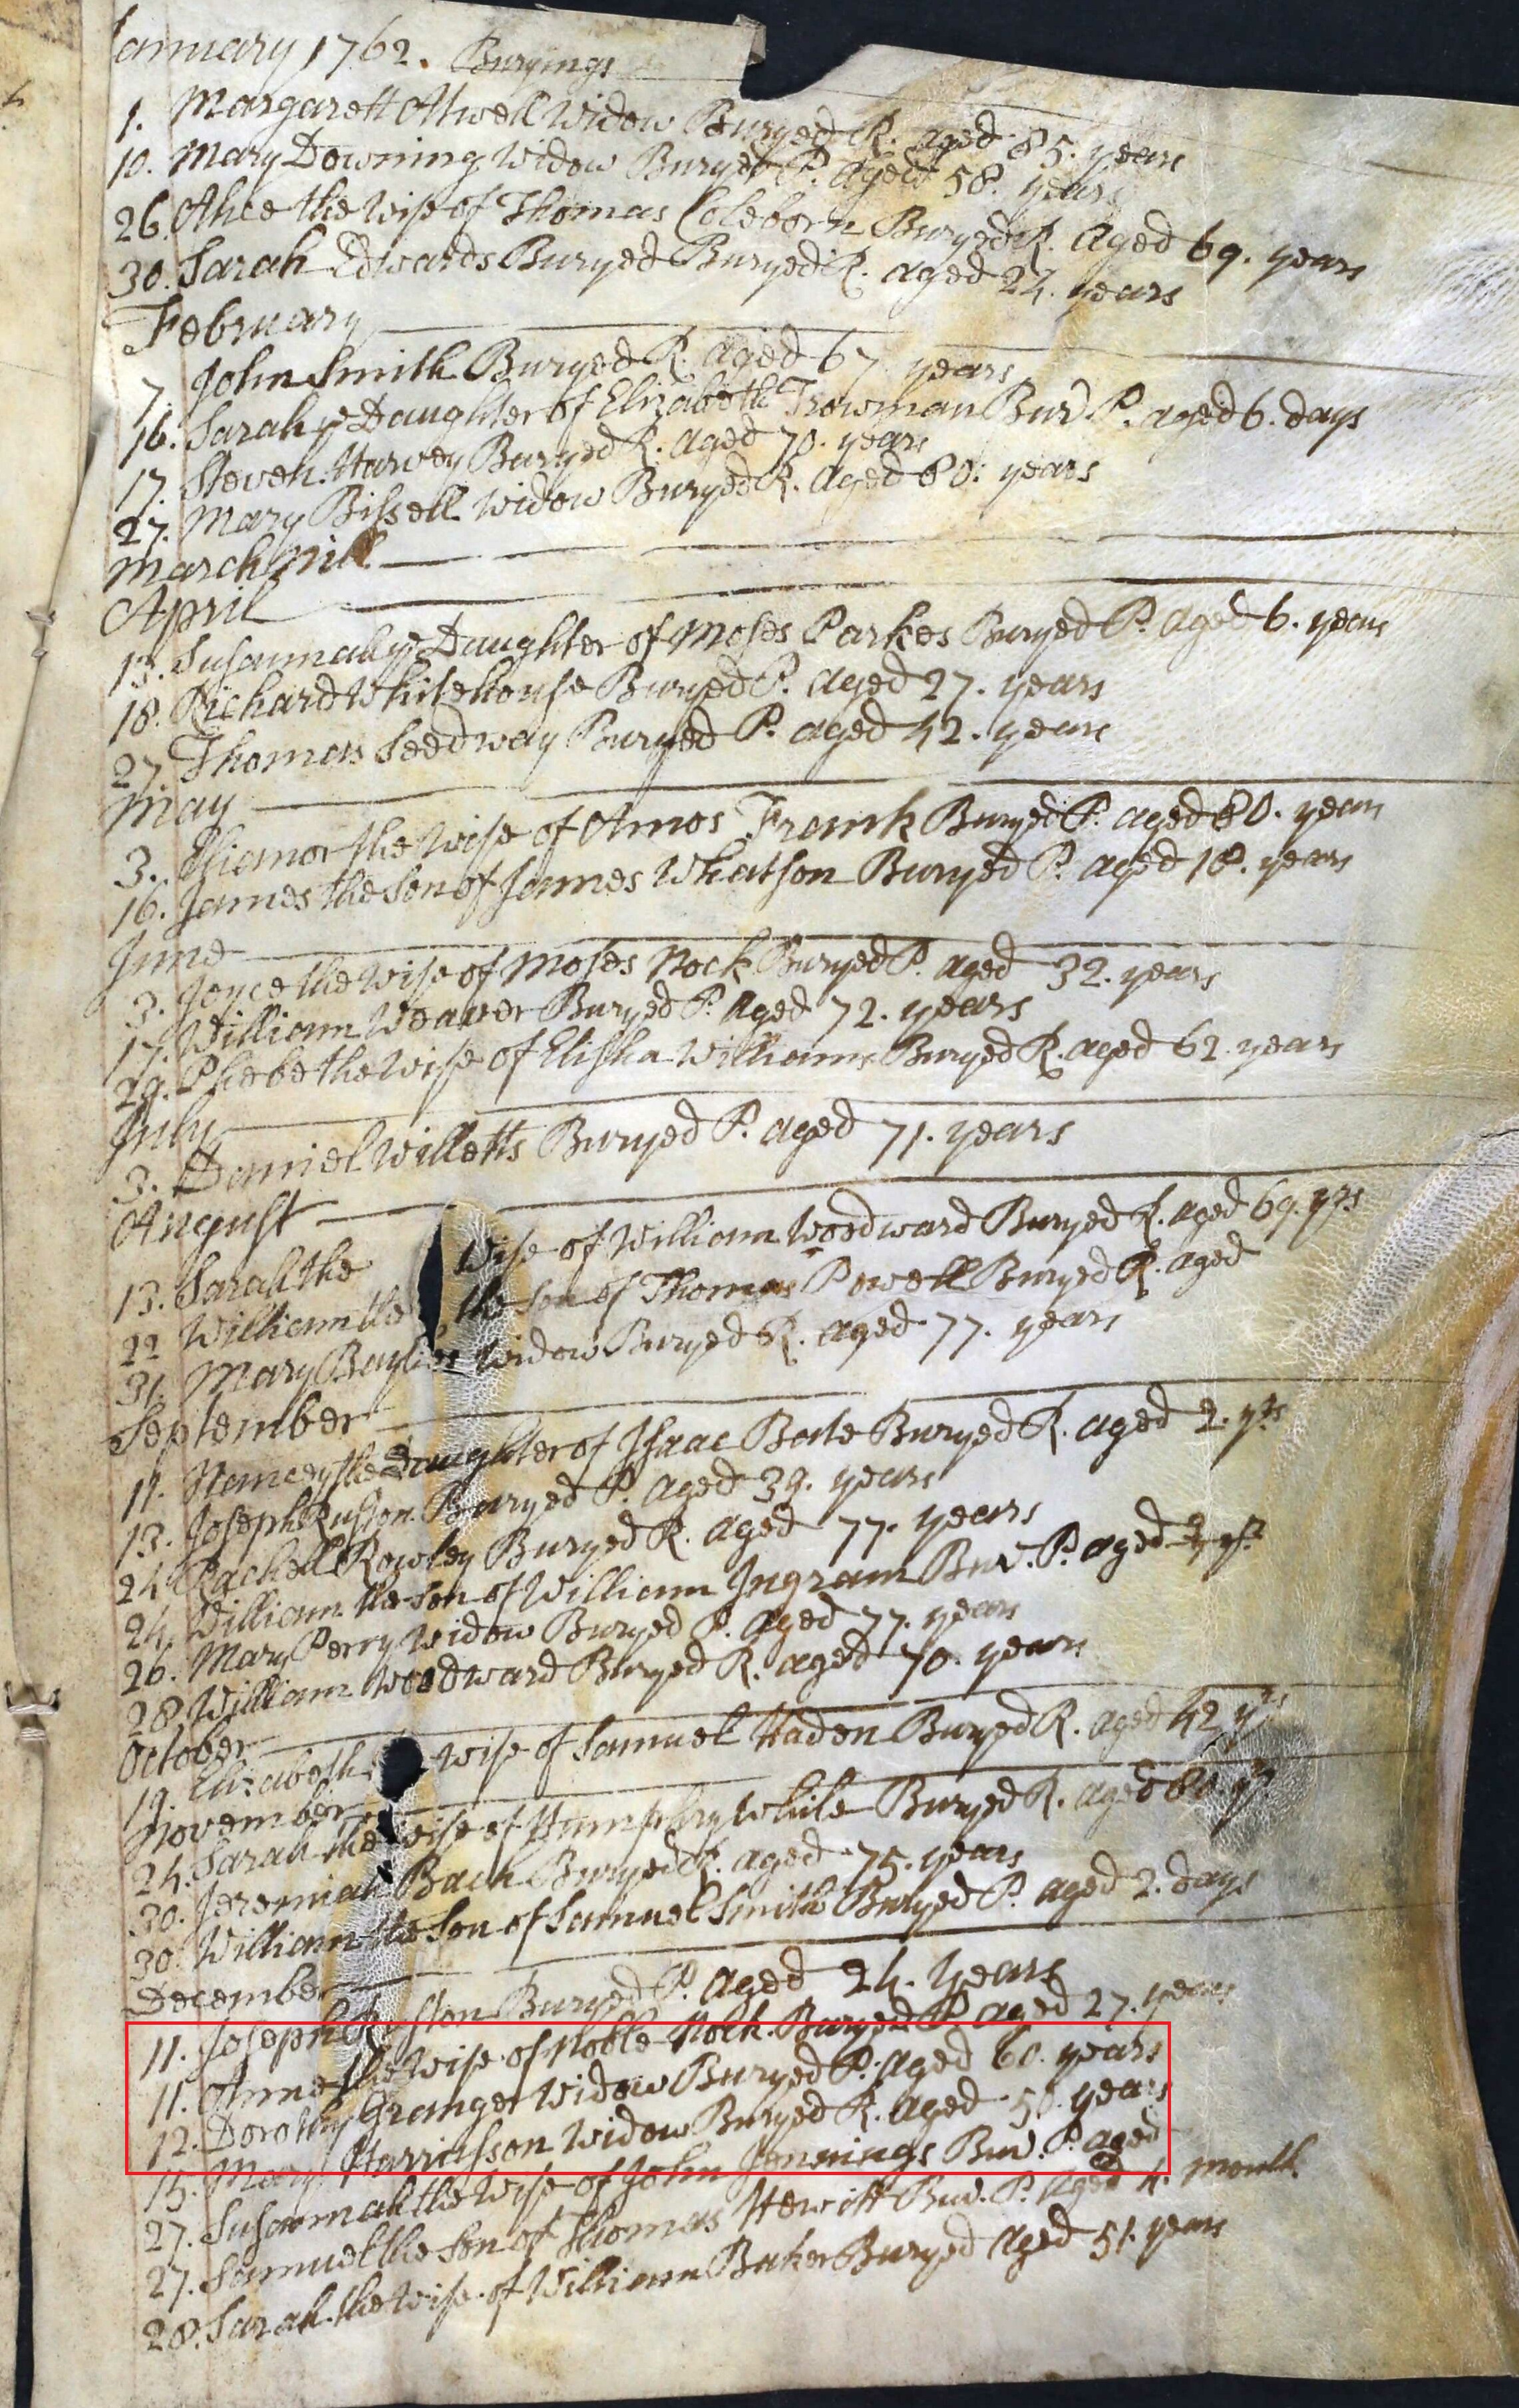 January 1762. Buryings
1. Margarett Attwell Widow Buryed R. aged 85. years
10. Mary Downing Widow Buryed P. Aged 58. years
26. Alice the Wife of Thomas Coleborn Buryed R. Aged 69. years
30. Sarah Edwards Buryed Buryed R. aged 24. years
February
7. John Smith Buryed R. aged 67 years
16. Sarah ye Daughter of Elizabeth Trowman Bur'd. P. aged 6. days
17. Steven Harvey Buryed R. Aged 70. years
27. Mary Bissell Widow Buryed R. Aged 80. years
March Nill
April
13. Susannah ye Daughter of Moses Parkes Buryed P. aged 6. years
18. Richard Whitehouse Buryed P. aged 27. years
27 Thomas Seedway Buryed P. aged 42. years
May
3. Elianor the Wife of Amos Frank Buryed P. aged 80. years
16. James the Son of James Whatson Buryed P. aged 18. years
June
3. Joyce the Wife of Moses Nock Buryed P. aged 32. years
17. William Weaver Buryed P. Aged 72. years
29. Phebe the Wife of Elisha Williams Buryed R. aged 62. years
July
3. Daniel Willetts Buryed P. aged 71. years
August
13. Sarah the Wife of William Woodward Buryed R. aged 69. yrs
22 William the the Son of Thomas Powell Buryed R. aged
31. Mary Baylies Widow Buryed R. aged 77. years
September
11. Nancey the Daughter of Isaac Bate Buryed R. aged 2. yrs
13. Joseph Ruston Buryed P. aged 39. years
24 Rachell Rowley Buryed R. aged 77. years
24. William the Son of William Ingram Bur'd. P. aged
26. Mary Perry Widow Buryed P. aged 77. years
28 William Woodward Buryed R. aged 70. years
October
19. Elizabeth wife of Samuel Haden Buryed R. aged 42 yrs
November
24. Sarah the Wife of Humphry White Buryed R. aged 60. yrs
30. Jeremiah Bach Buryed R. aged 75. years
30. William the Son of Samuel Smith Buryed P. aged 2. days
December
11. Joseph Ruston Buryed P. aged 24. years
11. Anne the Wife of Noble Nock Buryed P. aged 27. years
12. Dorothy Granger Widow Buryed P. aged 60. years
15. Mary Harrisson Widow Buryed R. aged 50. years
27. Susannah the Wife of John Jennings Bur'd. P. aged
27. Samuel the Son of Thomas Hewitt Bur'd. P. aged 4. month
28. Sarah the Wife of William Baker Buryed aged 51. years